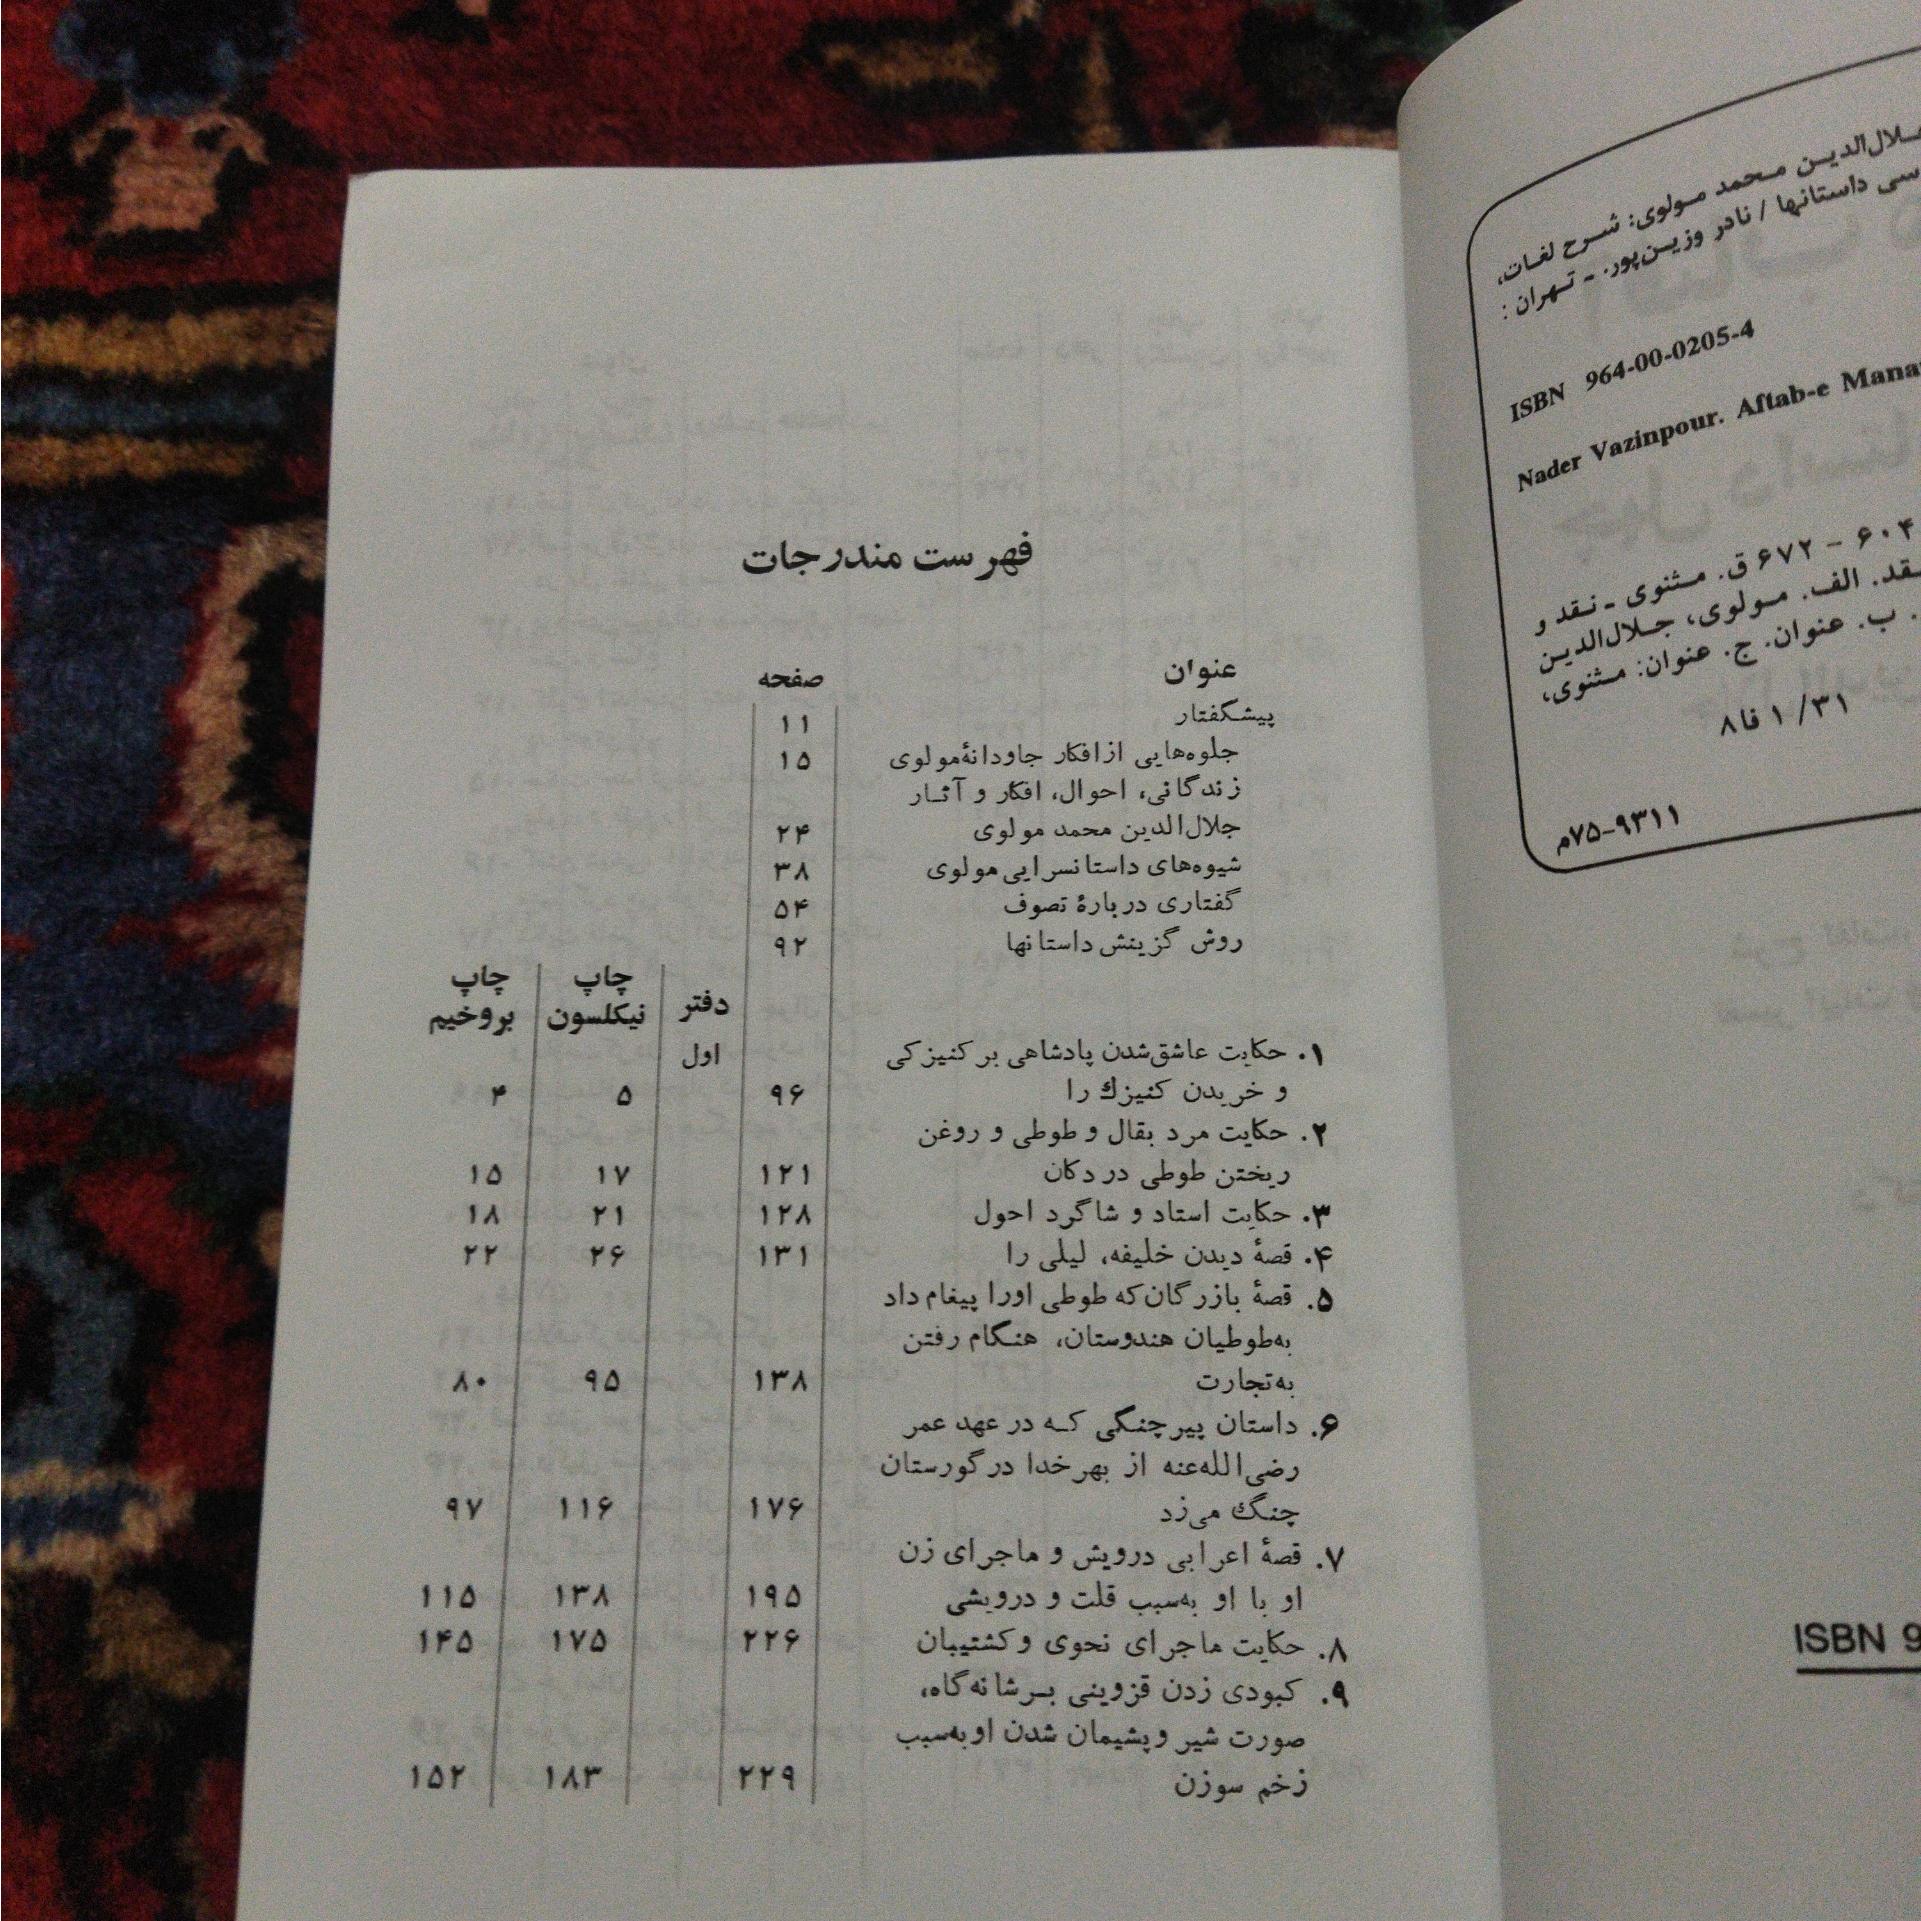 فهرست مندرجات
عنوان صفحه
پیشگفتار ۱۱
جلوه‌هایی از افکار جاودانهٔ مولوی ۱۵
زندگانی، احوال، افکار و آثار
جلال‌الدین محمد مولوی ۲۴
شیوه‌های داستانسرایی مولوی ۳۸
گفتاری دربارهٔ تصوف ۵۴
روش گزینش داستانها ۹۲
دفتر چاپ نیکلسون چاپ بروخیم
۱. حکایت عاشق‌شدن پادشاهی بر کنیزکی اول
و خریدن کنیزك را ۹۶ ۵ ۴
۲. حکایت مرد بقال و طوطی و روغن
ریختن طوطی در دکان ۱۲۱ ۱۷ ۱۵
۳. حکایت استاد و شاگرد احول ۱۲۸ ۲۱ ۱۸
۴. قصهٔ دیدن خلیفه، لیلی را ۱۳۱ ۲۶ ۲۲
۵. قصهٔ بازرگان که طوطی اورا پیغام داد
به‌طوطیان هندوستان، هنگام رفتن
به‌تجارت ۱۳۸ ۹۵ ۸۰
۶. داستان پیر چنگی که در عهد عمر
رضی‌الله‌عنه از بهر خدا در گورستان
چنگ می‌زد ۱۷۶ ۱۱۶ ۹۷
۷. قصهٔ اعرابی درویش و ماجرای زن
او با او به‌سبب قلت و درویشی ۱۹۵ ۱۳۸ ۱۱۵
۸. حکایت ماجرای نحوی و کشتیبان ۲۲۶ ۱۷۵ ۱۴۵
۹. کبودی زدن قزوینی بر شانه‌گاه،
صورت شیر و پشیمان شدن او به‌سبب
زخم سوزن ۲۲۹ ۱۸۳ ۱۵۲
جلال‌الدین محمد مولوی: شرح لغات،
داستانها / نادر وزین‌پور. - تهران :
ISBN 964-00-0205-4
Nader Vazinpour. Aftab-e
۶۰۴ - ۶۷۲ ق. مثنوی - نقد و
نقد. الف. مولوی، جلال‌الدین
. ب. عنوان. ج. عنوان: مثنوی،
۸فا ۱ /۳۱
۷۵-۹۳۱۱م
ISBN 9